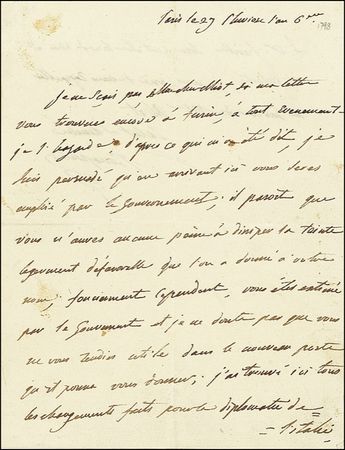 Paris le 27 Pluviose l'an 6eme 1798
Je ne sais pas, si ma lettre
vous trouvera encore à turin, à tout evenement
je d'apres ce qui m'a été dit, je
suis persuadé qu'en arrivant ici vous serez
employé par le Gouvernement; il paroit que
vous n'aurez aucune peine à dissiper la teinte
legerement défavorable que l'on a donné à votre
nom; cependant, vous êtes estimé
par le Gouvernement et je ne doute pas que vous
ne vous rendiez utile dans le nouveau poste
qu'il pourra vous donner; j'ai trouvé ici tous
les changements faits pour la diplomatie de
l'italie